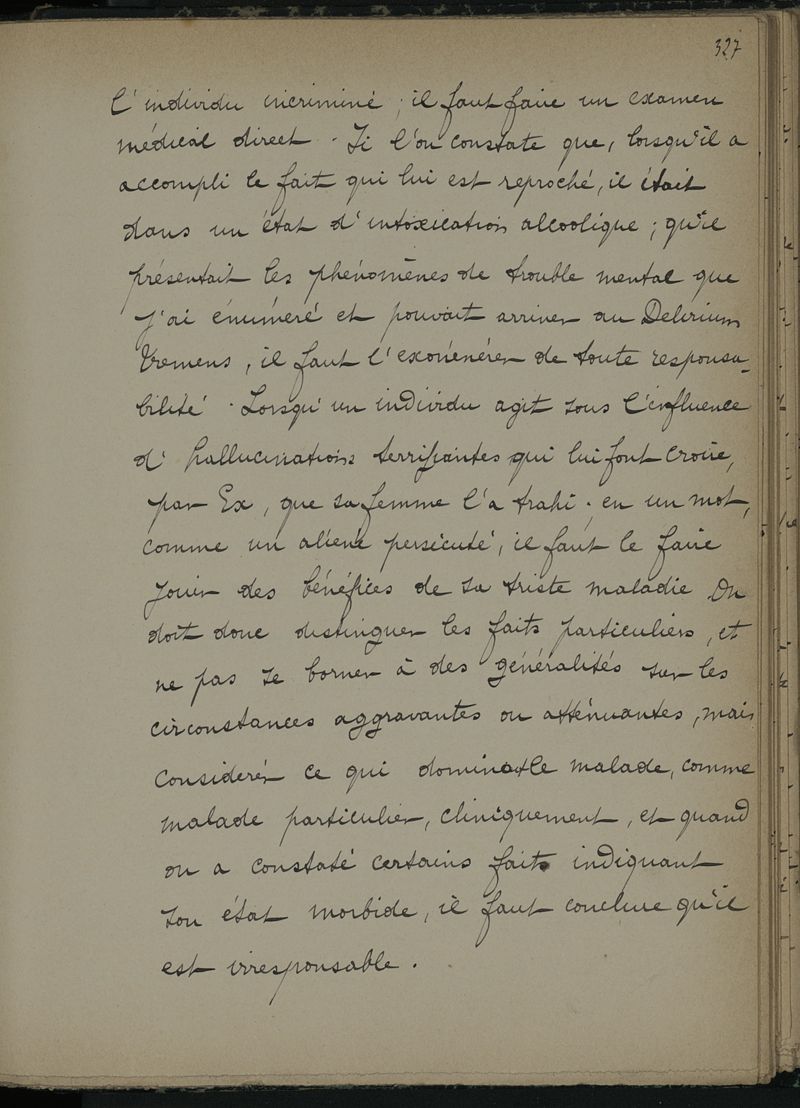 327
l'individu incriminé ; il faut faire un examen
médical direct . Si l'on constate que, lorsqu'il a
accompli le fait qui lui est reproché, il était
dans un état d'intoxication alcoolique ; qu'il
présentait les phénomènes de trouble mental que
j'ai énuméré et pouvait arriver au Delirium
Tremens, il faut l'exonénérer de toute responsa-
bilité . Lorsqu'un individu agit sous l'influence
d'hallucinations terrifiantes qui lui font croire,
par Ex, que sa femme l'a trahi ; en un mot,
comme un aliéné persécuté, il faut le faire
jouir des bénéfices de sa triste maladie On
doit donc distinguer les faits particuliers, et
ne pas se borner à des généralités sur les
circonstances aggravantes ou atténuantes, mais
considérér ce qui domine le malade, comme
malade particulier, cliniquement, et quand
on a constaté certains faits indiquant
son état morbide, il faut conclure qu'il
est irresponsable .